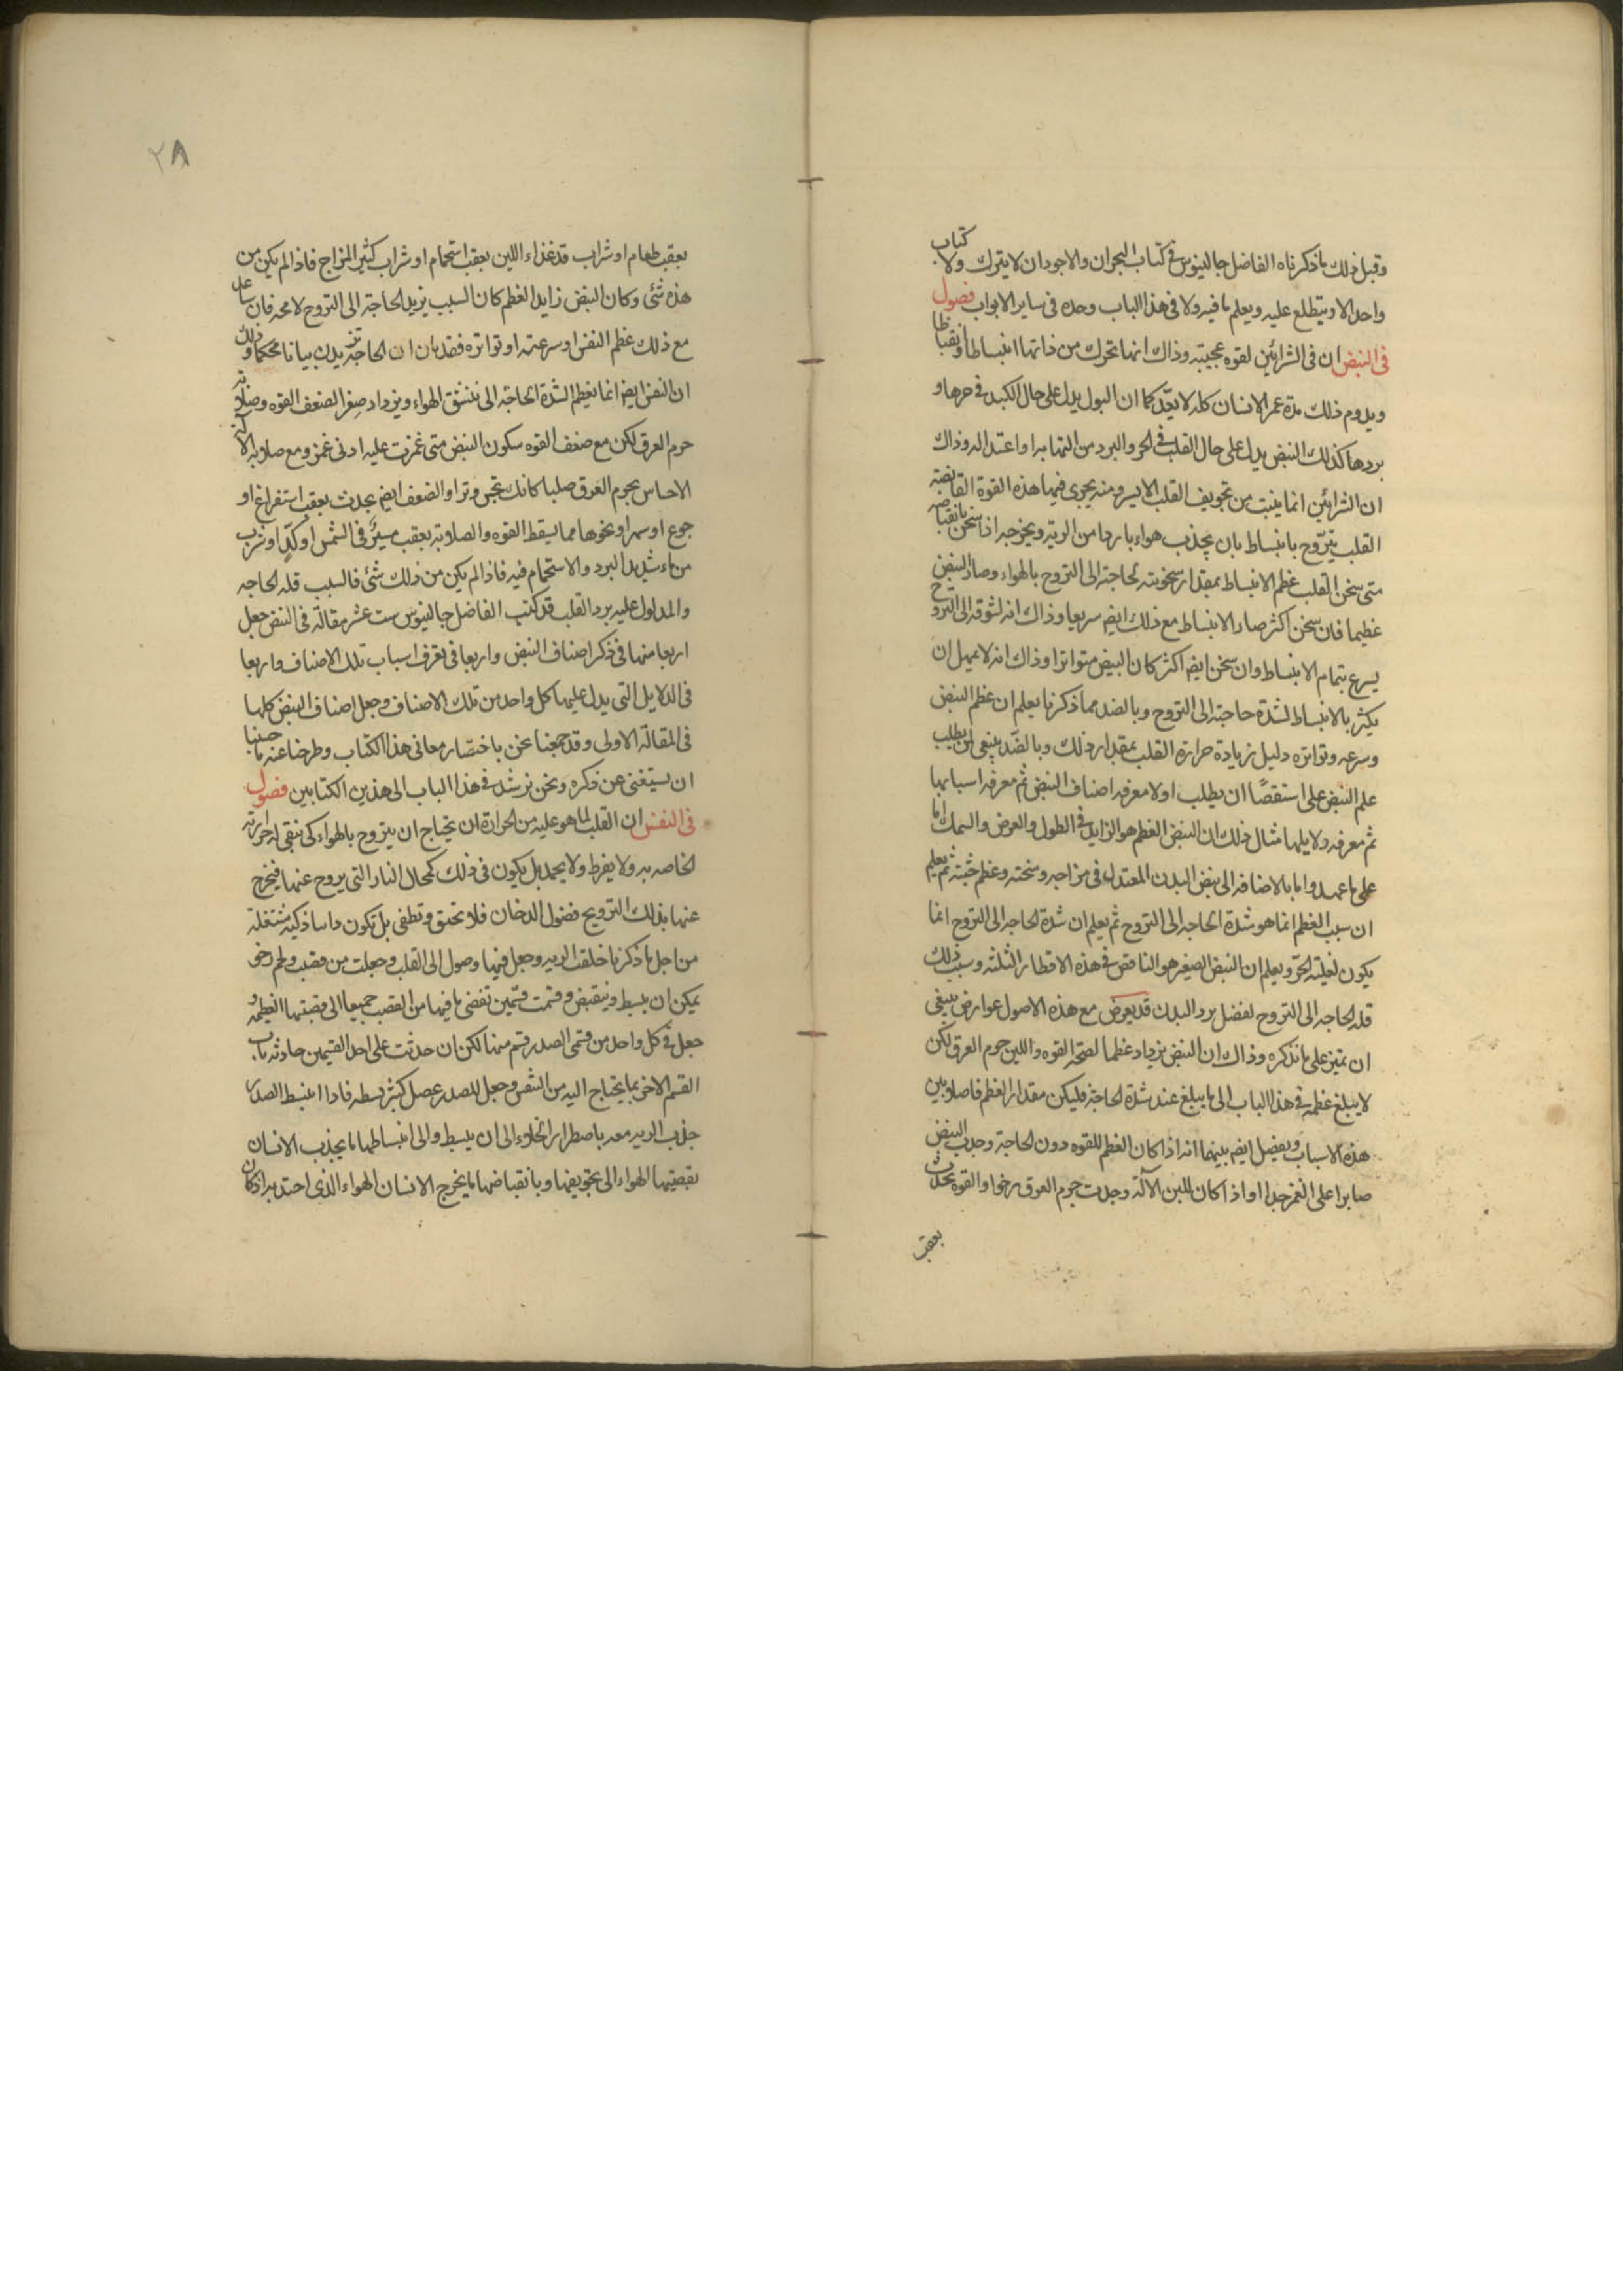 وقبل ذلك ما ذكرناه الفاضل جالينوس فى كتاب البحران والاجود ان لا يترك ولا كتاب
واحد الا ويتطلع عليه ويعلم ما فيه ولا فى هذا الباب وحده فى ساير الابواب فصول
فى النبض ان فى الشرائين لقوه عجيبته وذاك انها تحرك من ذاتها انبساطا وانقباضا
ويدوم ذلك مدة عمر الانسان كله لا يعدّ كما ان البول يدل على حال الكبد فى حرها و
بردها كذلك النبض يدل على حال القلب فى الحر والبرد من التهابه او اعتداله وذاك
ان الشرائين انما ينبت من تجويف القلب الايسر ومنه يجرى فيها هذه القوة القابضة
القلب يتروّح بانبساط بان يجذب هواء باردا من الريه ويخرجه اذا سخن بانقباضه
متى سخن القلب عظم الانبساط بمقدار سخونته لحاجته الى التروح بالهواء وصار النبض
عظيما فان سخن اكثر صار الانبساط مع ذلك ايضا سريعا وذاك انه لشوقه الى التروح
يسرع بتمام الانبساط وان سخن ايضا اكثر كان النبض متواترا وذاك انه لا يمهل ان
يكثر بالانبساط لشدة حاجته الى التروح وبالضد مما ذكرنا يعلم ان عظم النبض
وسرعه وتواتره دليل زيادة حرارة القلب بمقدار ذلك وبالضّد ينبغى لمن يطلب
علم النبض على استقصًا ان يطلب اولا معرفه اصناف النبض ثم معرفه اسبابها
ثم معرفه دلايلها مثال ذلك ان النبض العظم هو الزايد فى الطول والعرض والسمك اما
على ما عهد واما بالاضافه الى نبض البدن المعتدل فى مزاجه وسخنته وعظم جثته ثم يعلم
ان سبب العظم انما هو شدة الحاجه الى التروح ثم يعلم ان شدة الحاجه الى التروح انما
يكون لغلبة الحرّ ويعلم ان النبض الصغير هو الناقص فى هذه الاقطار الثلثه وسبب ذلك
قله الحاجه الى التروح لفضل برد البدن قد يعرض مع هذه الاصول عوارض ينبغى
ان تميز على ما نذكره وذاك ان النبض يزداد عظما لصحّة القوه واللين جرم العرق لكن
لا يبلغ عظمه فى هذا الباب الى ما يبلغ عند شدة الحاجة فليكن مقدار العظم فاصلا بين
هذه الاسباب ويفصل ايضا بينهما انه اذا كان العظم للقوه دون الحاجة وجدت النبض
صابرا على الغمز جدا او اذا كان للين الآلة وجدت جرم العرق رخوا والقوه تحدث
بعقب
٢٨
بعقب طعام او شراب قد غذاء اللين بعقب استحمام او شراب كثير المزاج فاذا لم يكن من
هذه شئ وكان النبض زايد العظم كان السبب تزيد الحاجة الى التروح لا محه فان ساعد
مع ذلك عظم النفس او سرعته او تواتره فقد بان ان الحاجة تزيدت بيانا محكما وذلك
ان النفس ايضا انما يعظم لشدة الحاجة الى تنشق الهواء ويزداد صغرا لضعف القوه وصلابة
جرم العرق لكن مع ضعف القوه سكون النبض متى غمزت عليه ادنى غمز ومع صلابة الآلة
الاحساس بجرم العرق صلبا كانك تجس وترا والضعف ايضا يحدث بعقب استفراغ او
جوع او سهر او نحوها مما يسقط القوه والصلابة بعقب مسيَر فى الشمس او كدٍّ او شرب
من ماء شديد البرد والاستحمام فيه فاذا لم يكن من ذلك شئ فالسبب قله الحاجه
والمدلول عليه برد القلب قد كتب الفاضل جالينوس ست عشر مقالة فى النبض جعل
اربعا منها فى ذكر اصناف النبض واربعا فى تعرف اسباب تلك الاصناف واربعا
فى الدلايل التى يدل عليها كل واحد من تلك الاصناف وجعل اصناف النبض كلها
فى المقالة الاولى وقد جمعنا نحن باختصار معانى هذا الكتاب وطرحنا عنه ما حسبنا
ان يستغنى عن ذكره ونحن نرشد فى هذا الباب الى هذين الكتابين فصول
فى النفس ان القلب لما هو عليه من الحرارة ان يحتاج ان يتروح بالهواء كى تبقى له حرارته
الخاصه به ولا يفرط ولا يخمد بل يكون فى ذلك كمحال النار التى يروح عنها فيخرج
عنها بذلك الترويح فضول الدخان فلا تختنق وتطفى بل تكون دايما ذكيه مشتعلة
من اجل ما ذكرنا خلقت الريه وجعل فيها وصول الى القلب وجعلت من قصب ولحم رخو
يمكن ان ينبسط وينقبض وقسمت قسمين تفضى ما فيها من القصب جميعا الى قصبتها العظيمه و
جعل فى كل واحد من قسمى الصدر قسم منها لكن ان حدثت على احد القسمين حادثه ناب
القسم الاخر بما يحتاج اليه من التنفس وجعل للصدر عضل كثير تبسطه فاذا انبسط الصدر
جذب الريه معه باضطرار الخلاء الى ان ينبسط والى انبساطها ما يجذب الانسان
بقصبتها الهواء الى تجويفها وبانقباضها ما يخرج الانسان الهواء الذى احتد به اذ كان